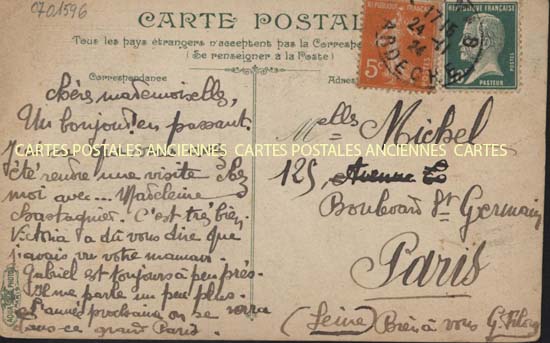 0701596
CARTE POSTALE
Tous les pays étrangers n'acceptent pas la Correspondance
(Se renseigner à la Poste)
Correspondance
Adresse
RÉPUBLIQUE FRANÇAISE
5
PASTEUR
ARDECHE
chères mademoiselles,
Un bonjour en passant.
CARTES POSTALES ANCIENNES CARTES POSTALES ANCIENNES CARTES
été rendre une visite chez
moi avec Madeleine
Chastagner. C'est très bien.
Victoria a dû vous dire que
j'avais vu votre maman.
Gabriel est toujours à peu près.
Il me parle un peu plus.
L'année prochaine on se verra
dans ce grand Paris.
Melles Michel
125, Avenue
Boulevard St Germain
Paris
(Seine) Bien à vous G.